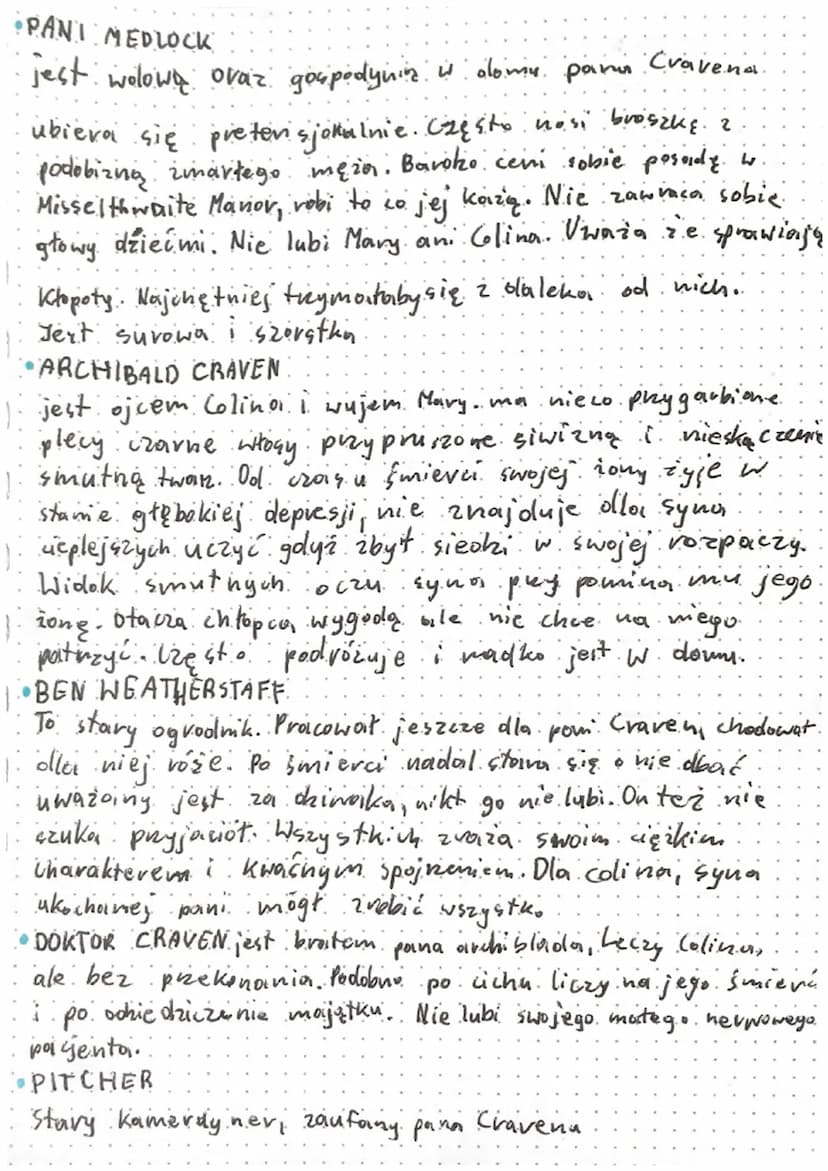 • PANI MEDLOCK
jest wdową oraz gospodynią w domu pana Cravena
ubiera się pretensjonalnie. Często nosi broszkę z
podobizną zmarłego męża. Bardzo ceni sobie posadę w
Misselthwaite Manor, robi to co jej każą. Nie zawraca sobie
głowy dziećmi. Nie lubi Mary ani Colina. Uważa że sprawiają
kłopoty. Najchętniej trzymałaby się z daleka od nich.
Jest surowa i szorstka
• ARCHIBALD CRAVEN
jest ojcem Colina i wujem Mary. ma nieco przygarbione
plecy czarne włosy przyprószone siwizną i nieskączenie
smutną twarz. Od czasu śmierci swojej żony żyje w
stanie głębokiej depresji, nie znajduje dla syna
cieplejszych uczyć gdyż zbyt siedzi w swojej rozpaczy.
Widok smutnych oczu syna przypomina mu jego
żonę. Otacza chłopca wygodą ale nie chce na niego
patrzyć. Często podróżuje i rzadko jest w domu.
• BEN WEATHERSTAFF
To stary ogrodnik. Pracował jeszcze dla pani Craven, chodował
dla niej róże. Po śmierci nadal stara się o nie dbać
uważany jest za dziwaka, nikt go nie lubi. On też nie
szuka przyjaciół. Wszystkich zraża swoim ciężkim
charakterem i kwaśnym spojrzeniem. Dla colina, syna
ukochanej pani mógł zrobić wszystko.
• DOKTOR CRAVEN jest bratem pana archiblada, Leczy Colina,
ale bez przekonania. Podobno po cichu liczy na jego śmierć
i po odziedziczenie majątku. Nie lubi swojego małego nerwowego
pacjenta.
• PITCHER
Stary kamerdyner, zaufany pana Cravena